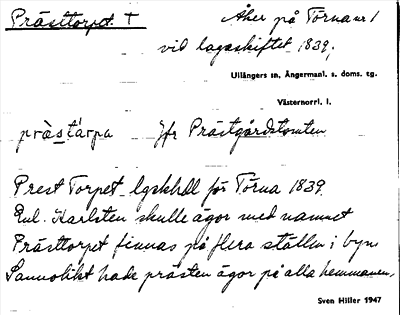 Prästtorpet † Åker på Törna nr 1
vid lagaskiftet 1839,
Ullångers sn, Ångermanl. s. doms. tg.
Västernorrl. l.
prästärpa Jfr Prästgårdstomten
Prest Torpet lgskhdl för Törna 1839
Enl. Karlsten skulle ägor med namnet
Prästtorpet finnas på flera ställen i byn
Sannolikt hade prästen ägor på alla hemmanen.
Sven Hiller 1947